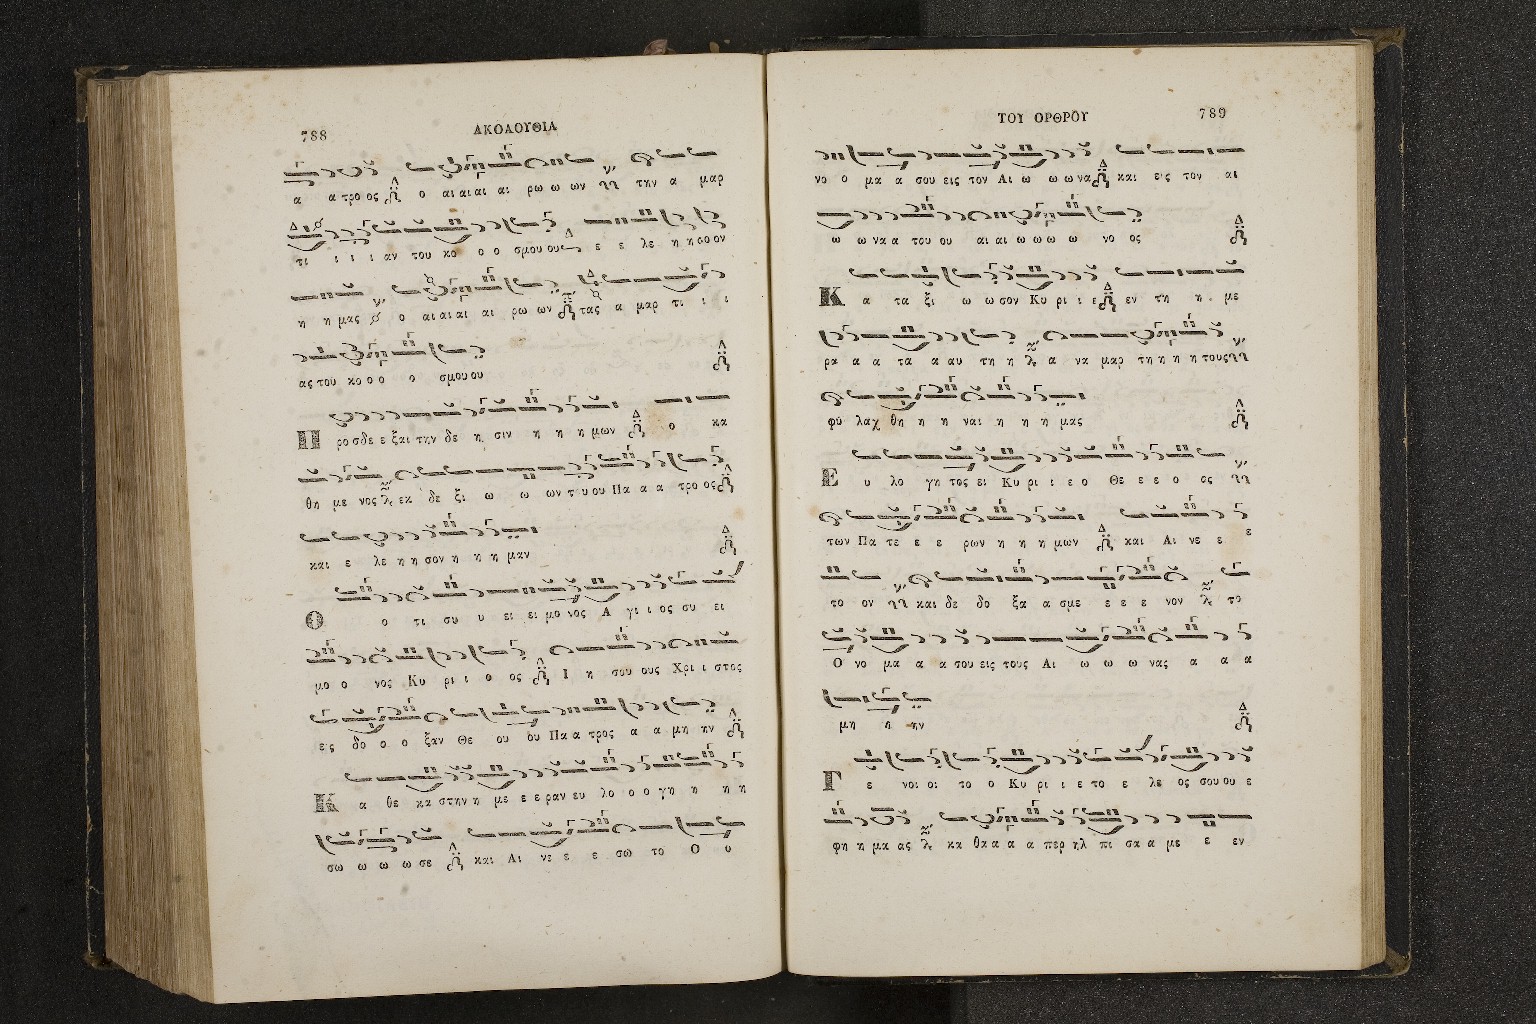 788
ΑΚΟΛΟΥΘΙΑ
α α τρο ος ο αι αι αι αι ρω ω ων την α μαρ
τι ι ι ι αν του κο ο ο σμου ου ε ε λε η η σο ον
η η μας ο αι αι αι αι ρω ων τας α μαρ τι ι ι
ας του κο ο ο ο σμου ου
Π ροσδε ε ξαι την δε η σιν η η η μων ο κα
θη με νος εκ δε ξι ω ω ων του ου Πα α α τρο ος
και ε λε η η σον η η η μαν
Ο ο τι συ υ ει ει μο νος Α γι ι ος συ ει
μο ο νος Κυ ρι ι ο ος Ι η σου ους Χρι ι στος
εις δο ο ο ξαν Θε ου ου Πα α τρος α α μη ην
Κ α θε κα στην η με ε ε ραν ευ λο ο ο γη η η η
σω ω ω ω σε και Αι νε ε ε σω το Ο υ
ΤΟΥ ΟΡΘΡΟΥ
789
νο ο μα α σου εις τον Αι ω ω ω να και εις τον αι
ω ω να α του ου αι αι ω ω ω ω νο ος
Κ α τα ξι ω ω σον Κυ ρι ι ε εν τη η με
ρα α α τα α αυ τη η α να μαρ τη η η η τους
φυ λαχ θη η η ναι η η η μας
Ε υ λο γη τος ει Κυ ρι ι ε ο Θε ε ε ο ος
των Πα τε ε ε ρων η η η μων και Αι νε ε ε
το ον και δε δο ξα α σμε ε ε ε νον το
Ο νο μα α α σου εις τους Αι ω ω ω νας α α α
μη η ην
Γ ε νοι οι το ο Κυ ρι ι ε το ε λε ος σου ου ε
φη η μα ας κα θα α α περ ηλ πι σα α με ε εν